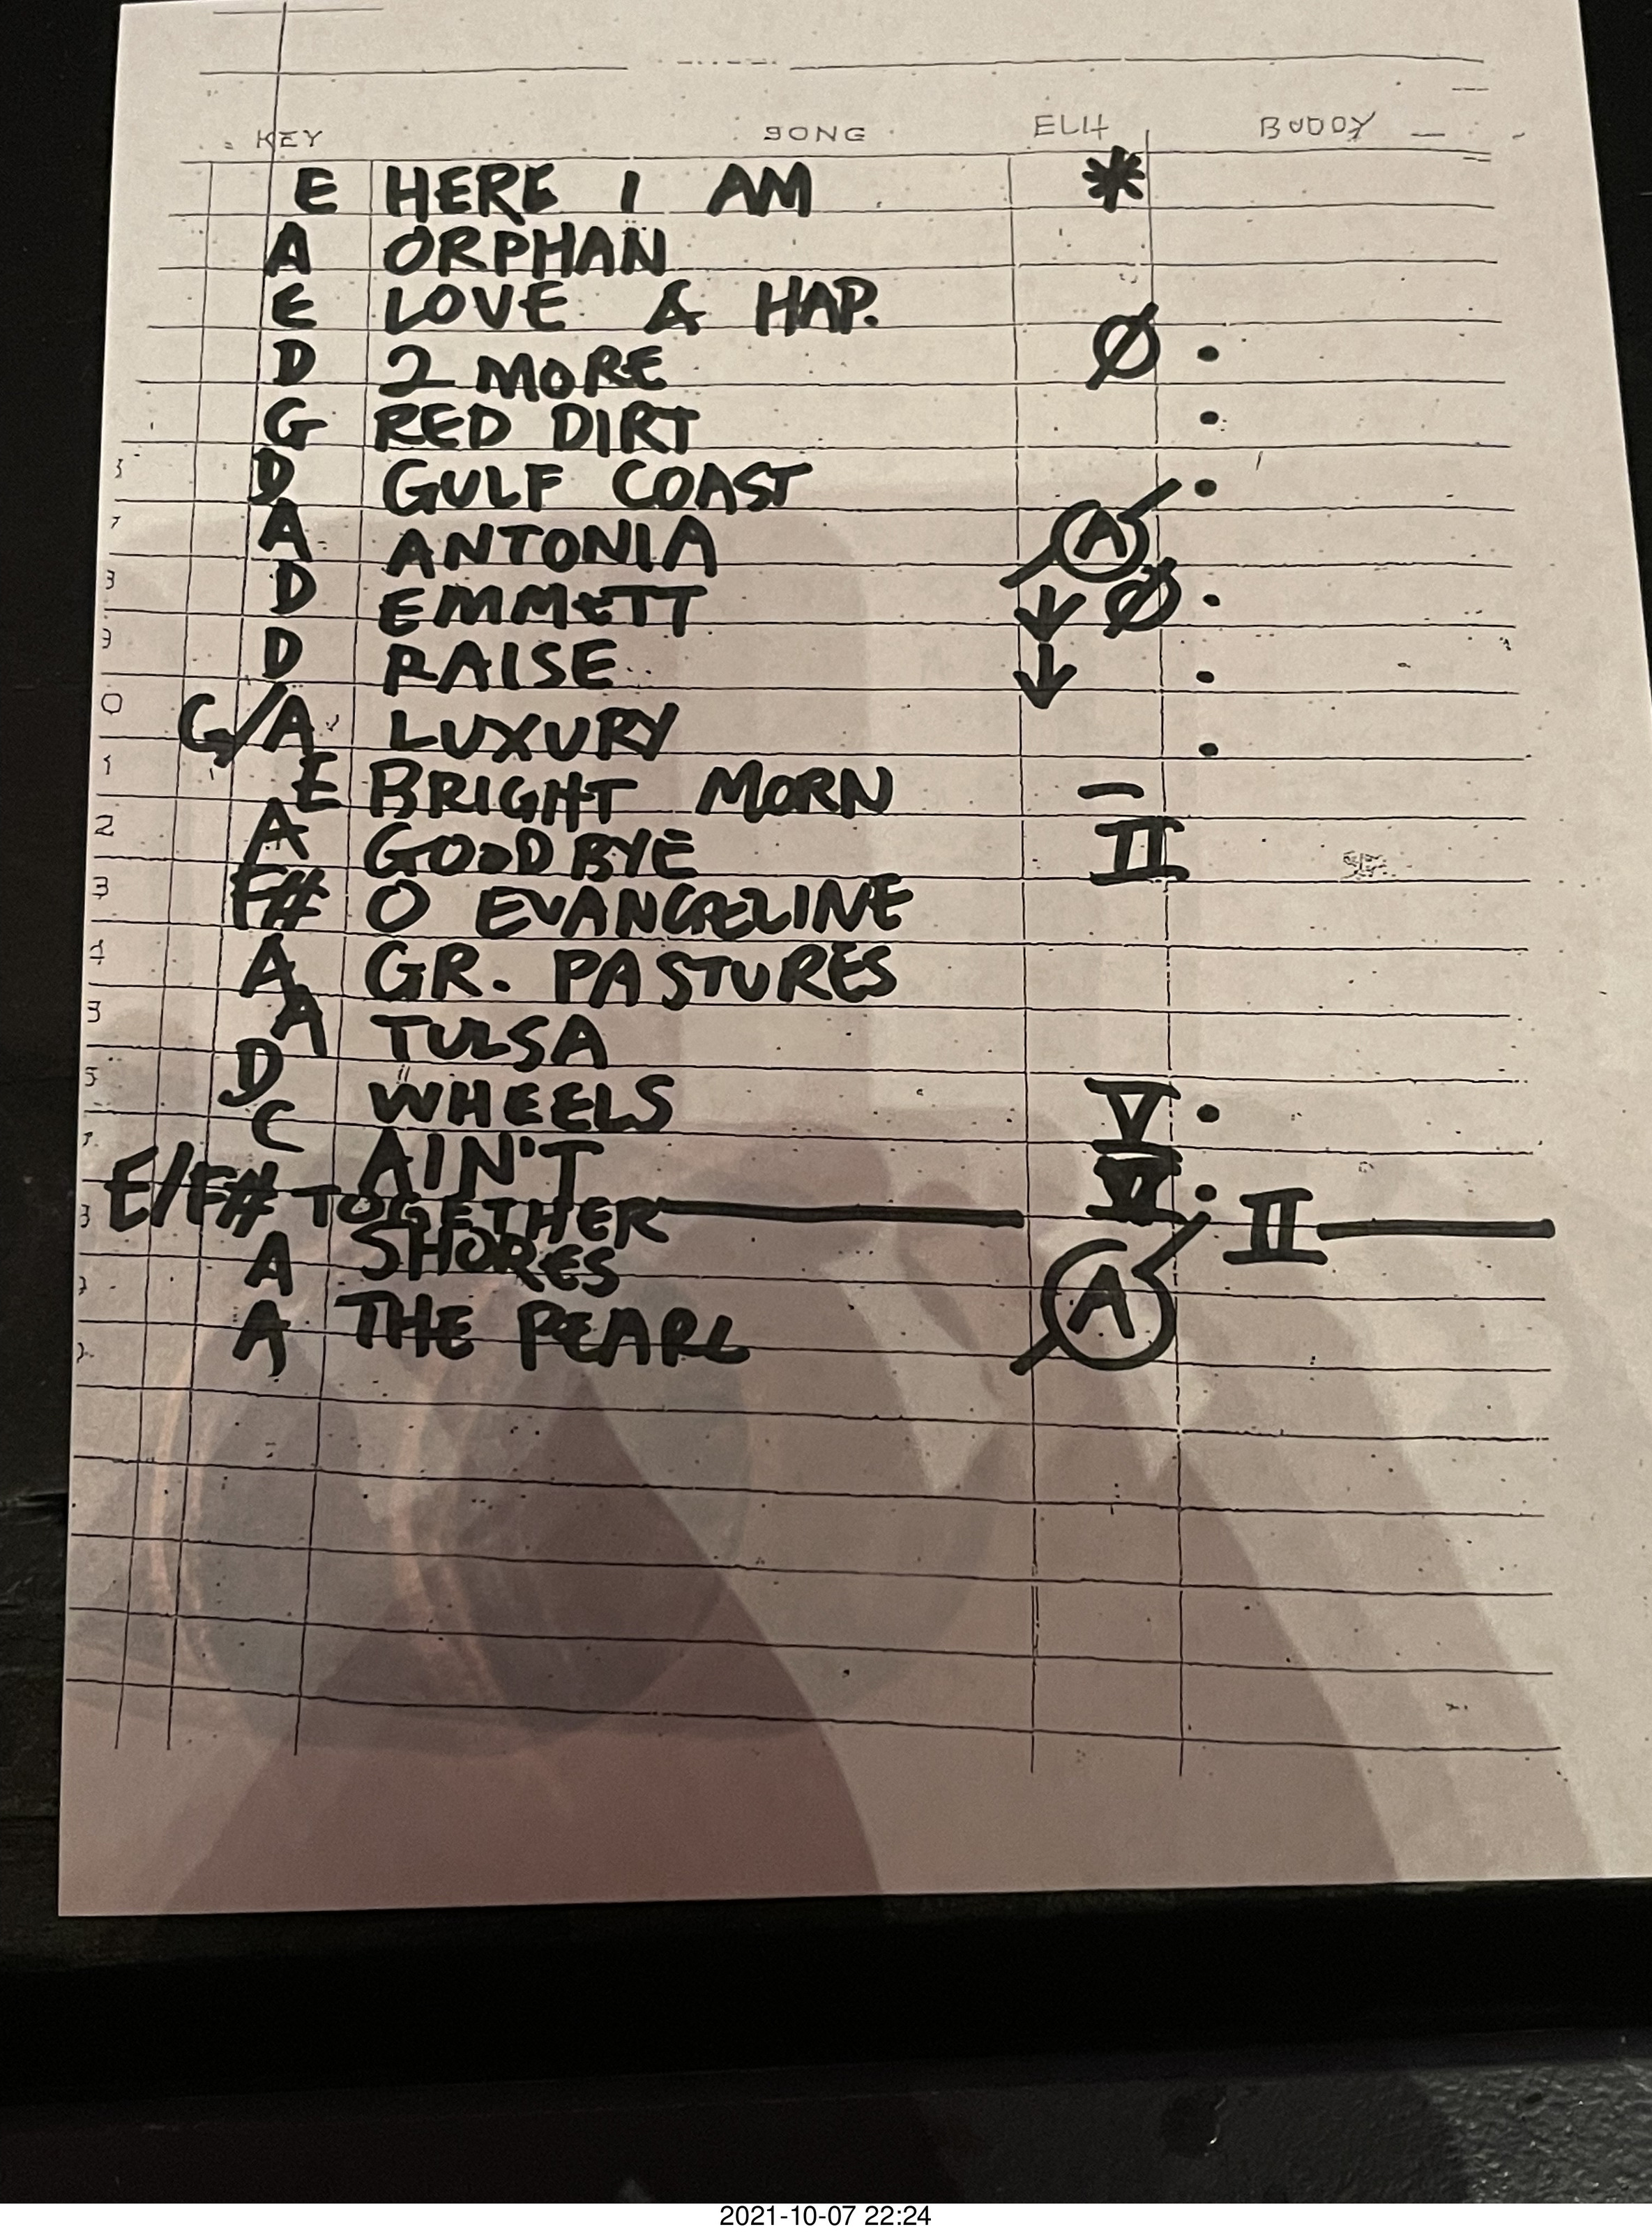 KEY SONG ELH BUDDY
E HERE I AM *
A ORPHAN
E LOVE & HAP.
D 2 MORE Ø •
G RED DIRT •
D GULF COAST •
A ANTONIA A
D EMMETT ↓ Ø •
D RAISE ↓ •
G/A LUXURY •
E BRIGHT MORN –
A GOODBYE II
F# O EVANGELINE
A GR. PASTURES
A TULSA
D WHEELS V •
C AIN'T VI •
E/F# TOGETHER II
A SHORES A
A THE PEARL
2021-10-07 22:24